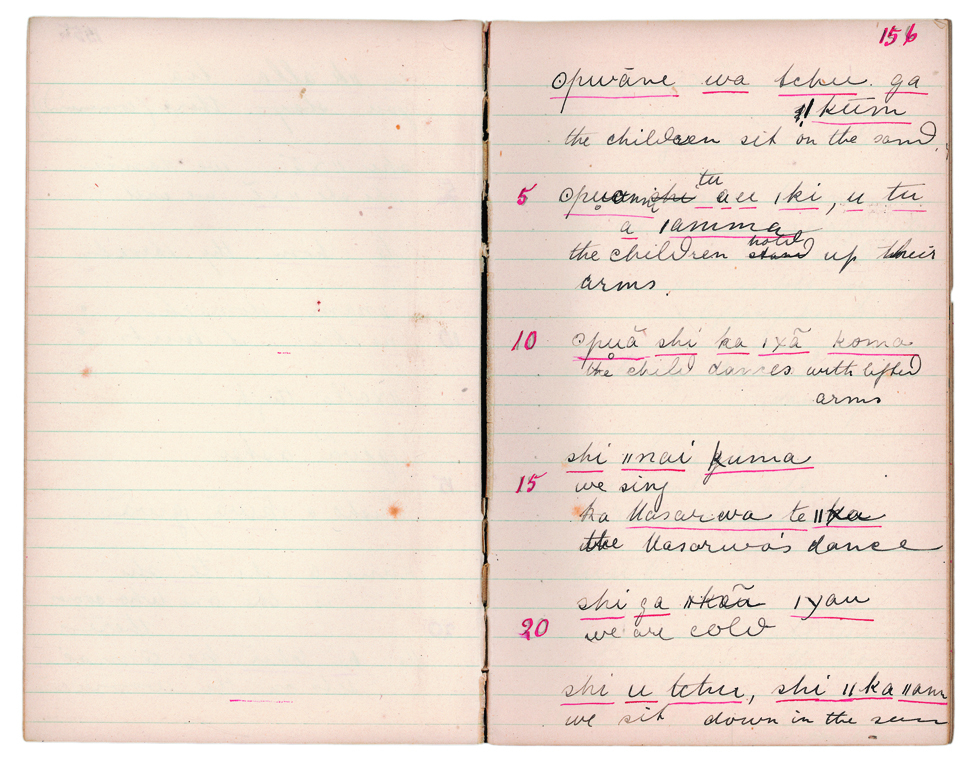 156
ʘpwāne wa tchu ga
ǁkum
the children sit on the sand.
tu
5 au ǀki, u tu
a ǀamma
hold
the children stand up their
arms.
10 ʘpuã shi ka ǀxã koma
the child dances with lifted
arms
shi ǁnai kuma
15 we sing
ka Masarwa te ǁka
the Masarwa's dance
shi ga ǁkãã ǀyau
20 we are cold
shi u tchu, shi ǁka ǁam
we sit down in the sun